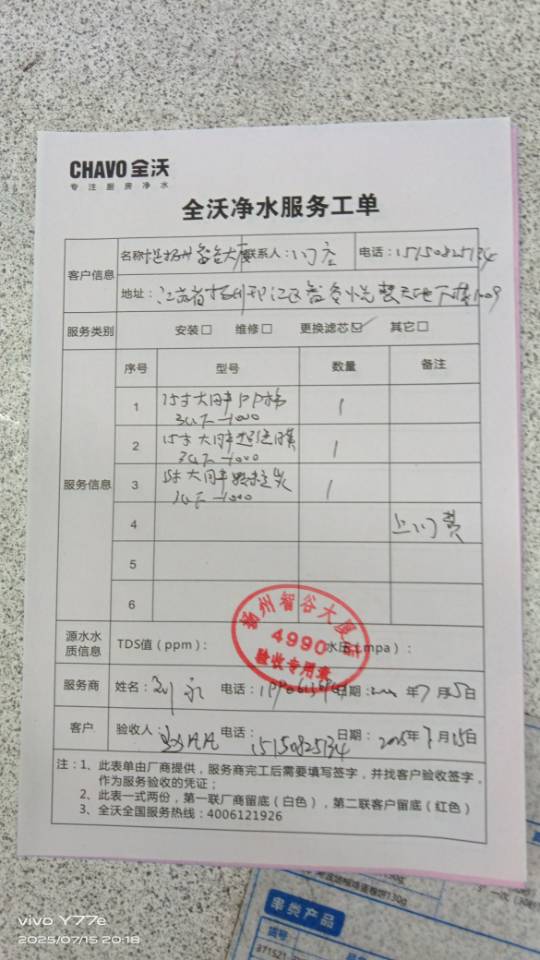 CHAVO 全沃
专注厨房净水
全沃净水服务工单
客户信息
名称 扬州智谷大厦 联系人：门店 电话：15150825134
地址：江苏省扬州邗江区智谷
服务类别 安装□ 维修□ 更换滤芯☑ 其它□
服务信息
序号 型号 数量 备注
1 15寸大同率PP棉 1
2 15寸大同率超滤膜 1
3 15寸大同率 炭 1
4 上门费
5
6
扬州智谷大厦店
4990
验收专用章
源水水质信息 TDS值（ppm）： 水压（mpa）：
服务商 姓名：刘永 电话： 日期： 年7月15日
客户 验收人： 电话：15150825134 日期：2025年7月15日
注：1、此表单由厂商提供，服务商完工后需要填写签字，并找客户验收签字，
作为服务验收的凭证；
2、此表一式两份，第一联厂商留底（白色），第二联客户留底（红色）
3、全沃全国服务热线：4006121926
串类产品
货号
vivo Y77e
2025/07/15 20:18